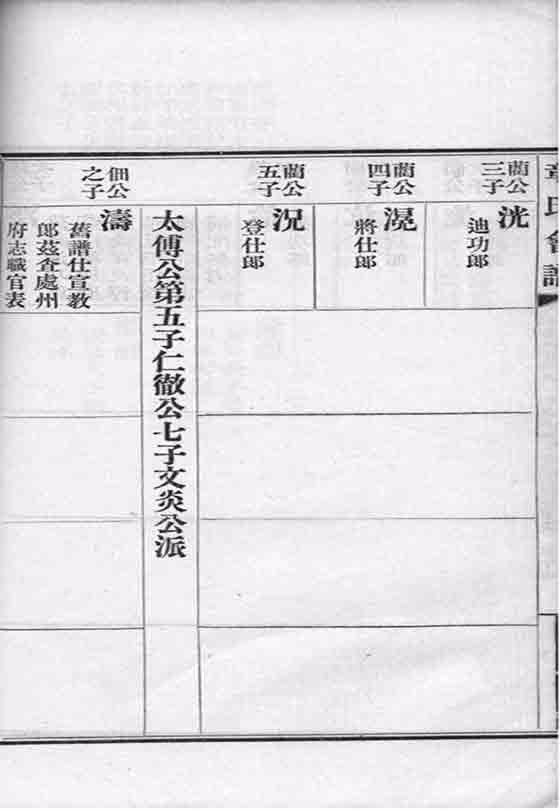 章氏會譜
蘭公
三子
洸
迪功郎
蘭公
四子
滉
將仕郎
蘭公
五子
況
登仕郎
太傅公第五子仁徹公七子文炎公派
佃公
之子
濤
舊譜仕宣教
郎茲查處州
府志職官表